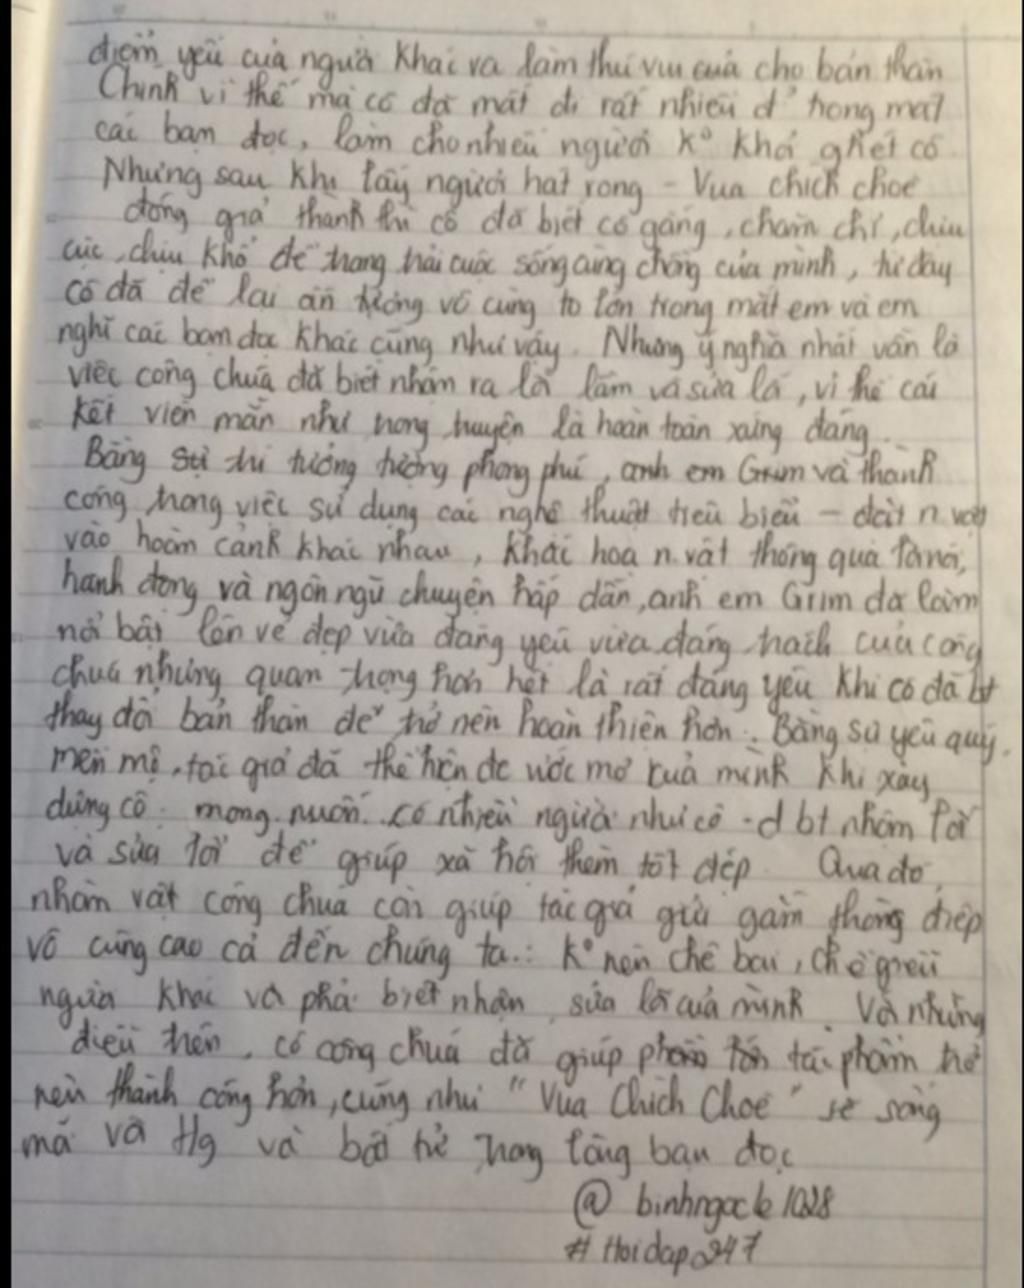 điểm yếu của người khác và làm thú vui của cho bản thân
Chính vì thế mà cô đã mất đi rất nhiều đ' trong mắt
các bạn đọc, làm cho nhiều người k° khỏi ghét cô
Nhưng sau khi lấy người hát rong - Vua chích choè
đóng giả thành thì cô đã biết cố gắng, chăm chỉ, chịu
cực, chịu khổ để trang trải cuộc sống cùng chồng của mình, từ đây
cô đã để lại ấn tượng vô cùng to lớn trong mắt em và em
nghĩ các bạn đọc khác cũng như vậy. Nhưng ý nghĩa nhất vẫn là
việc công chúa đã biết nhận ra lỗi lầm và sửa lỗi, vì thế cái
kết viên mãn như trong truyện là hoàn toàn xứng đáng.
Bằng sự trí tưởng tượng phong phú, anh em Grim và thành
công trong việc sử dụng các nghệ thuật tiêu biểu - đặt n.vật
vào hoàn cảnh khác nhau, khắc hoạ n.vật thông qua lời nói,
hành động và ngôn ngữ chuyện hấp dẫn, anh em Grim đã làm
nổi bật lên vẻ đẹp vừa đáng yêu vừa đáng trách của công
chúa nhưng quan trọng hơn hết là rất đáng yêu khi cô đã bt
thay đổi bản thân để trở nên hoàn thiện hơn. Bằng sự yêu quý,
mến mộ, tác giả đã thể hiện đc ước mơ của mình khi xây
dựng cô: mong muốn có nhiều người như cô - d bt nhận lỗi
và sửa lỗi để giúp xã hội thêm tốt đẹp. Qua đó,
nhân vật công chúa còn giúp tác giả gửi gắm thông điệp
vô cùng cao cả đến chúng ta: k° nên chê bai, chế giễu
người khác và phải biết nhận, sửa lỗi của mình. Và những
điều trên, cô công chúa đã giúp tác phẩm trở
nên thành công hơn, cũng như "Vua Chích Choè" sẽ sống
mãi và và bất tử trong lòng bạn đọc
@ binhngocle1028
# Hoidap247